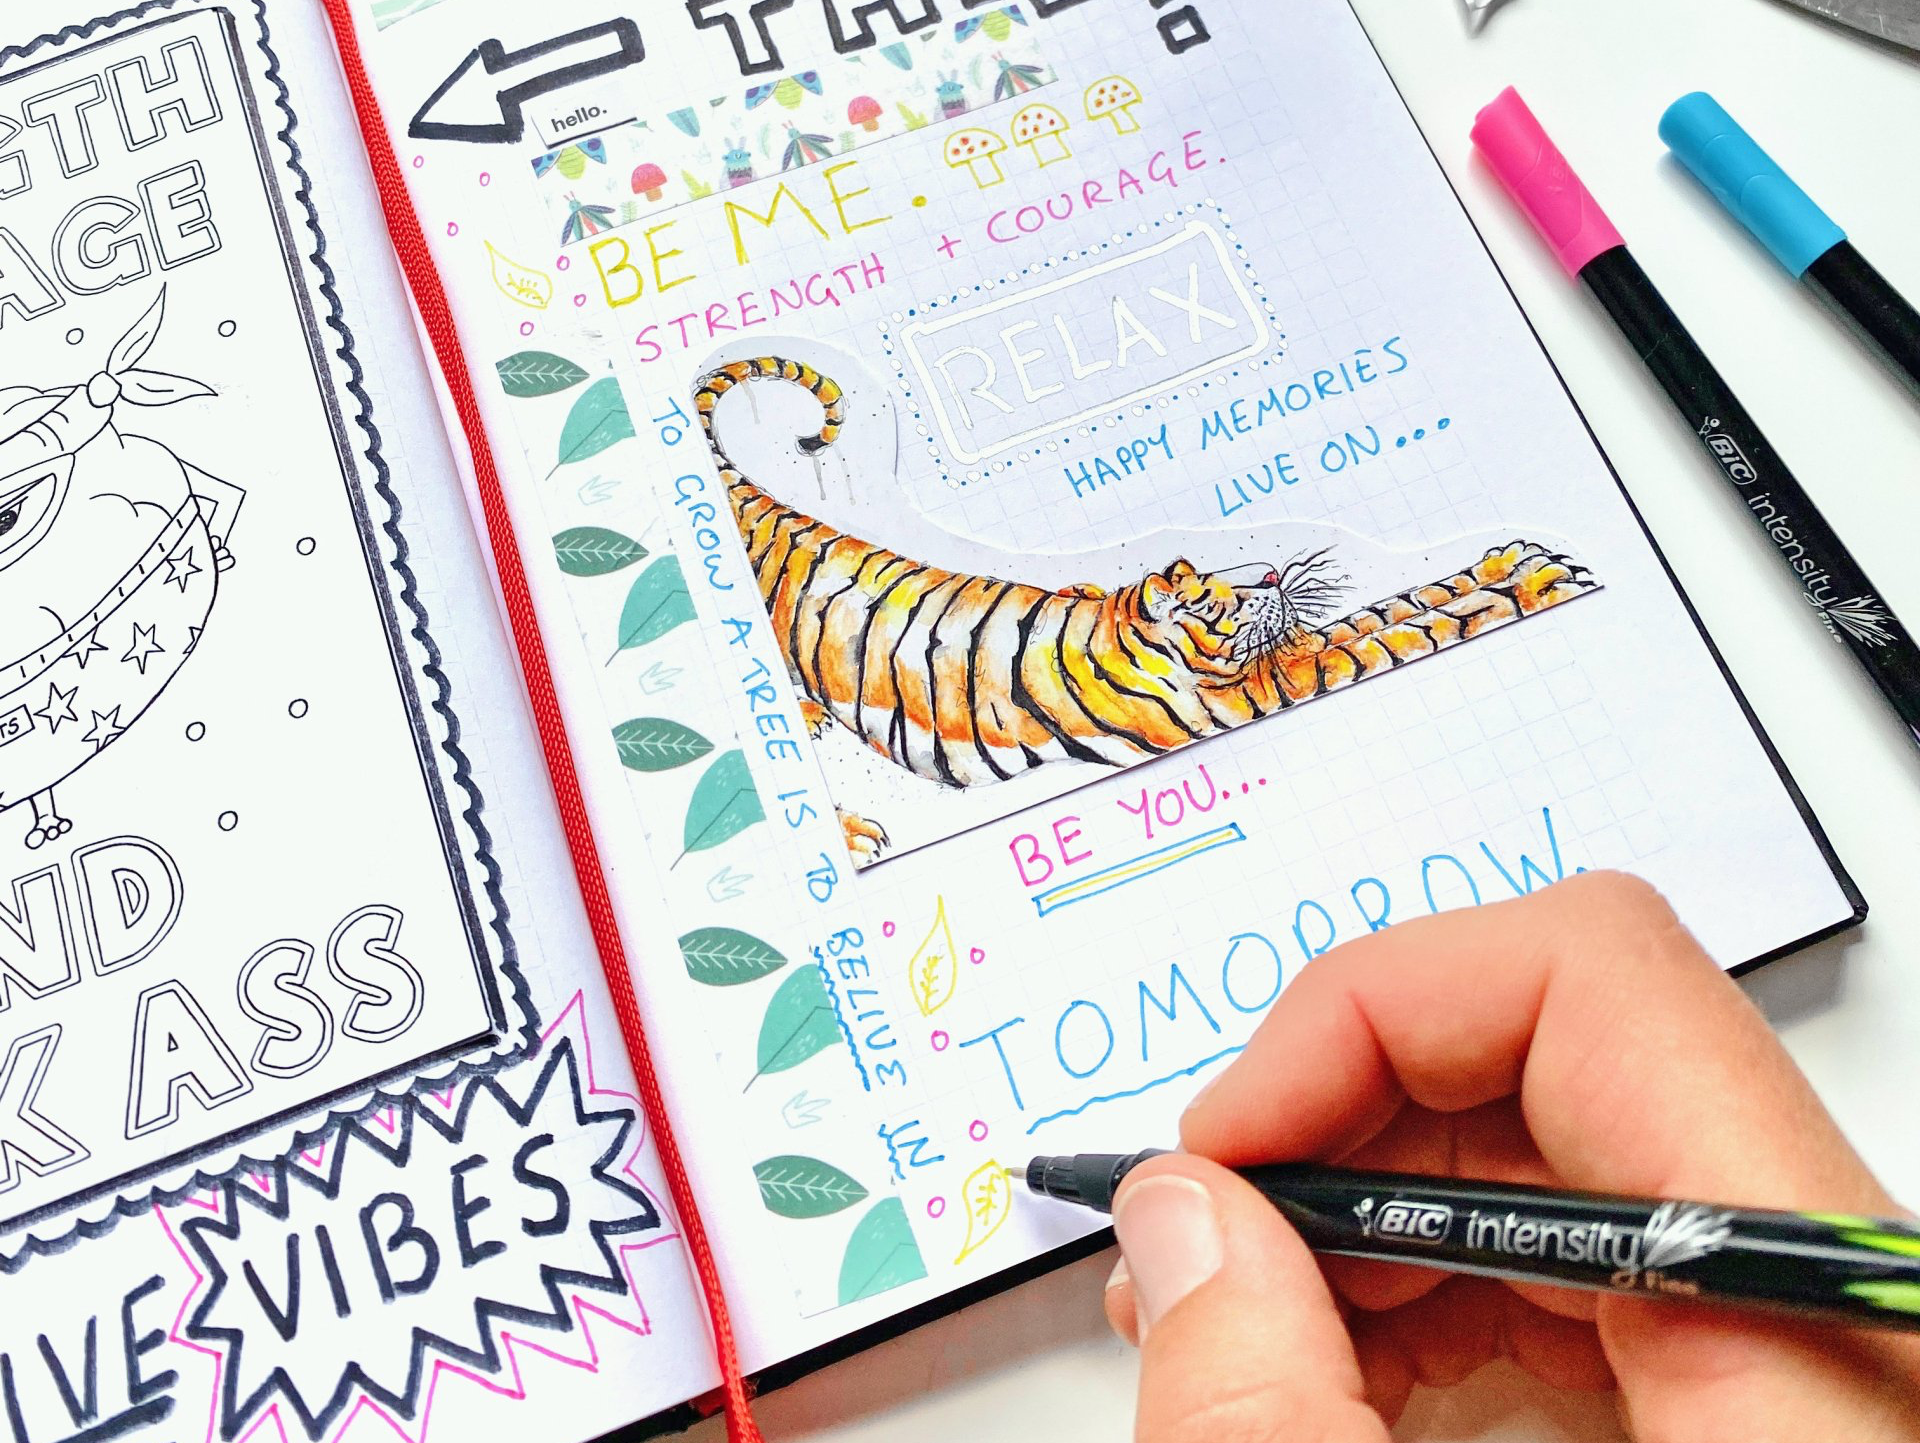 GTH
AGE
TS
ND
K ASS
IVE
VIBES
hello.
BE ME.
STRENGTH + COURAGE.
RELAX
HAPPY MEMORIES
LIVE ON...
BE YOU...
TO GROW A TREE IS TO BELIVE IN
TOMORROW.
BIC intensity Fine
BIC intensity Fine